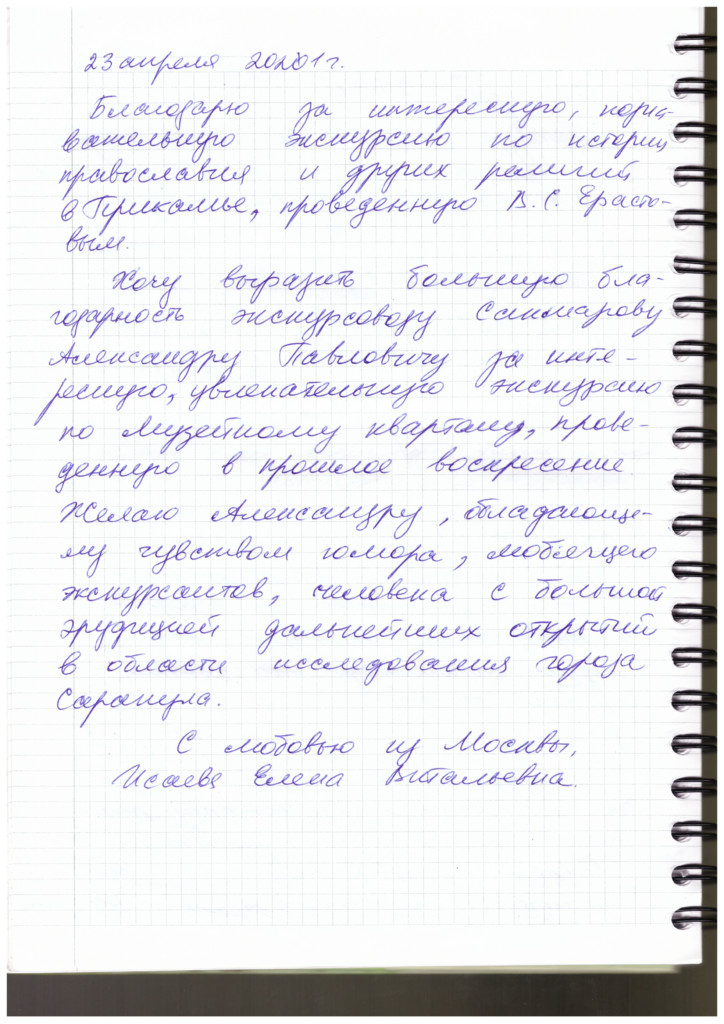 23 апреля 20201г.
Благодарю за интересную, позна-
вательную экскурсию по истории
православия и других религий
в Прикамье, проведенную В. С. Ерасто-
вым.
Хочу выразить большую бла-
годарность экскурсоводу
Александру Павловичу за инте-
ресную, увлекательную экскурсию
по Музейному кварталу, прове-
денную в прошлое воскресение
Желаю Александру, обладающе-
му чувством юмора, любящего
экскурсантов, человека с большой
эрудицией дальнейших открытий
в области исследования города
Сарапула.
С любовью из Москвы,
Исаева Елена Витальевна.